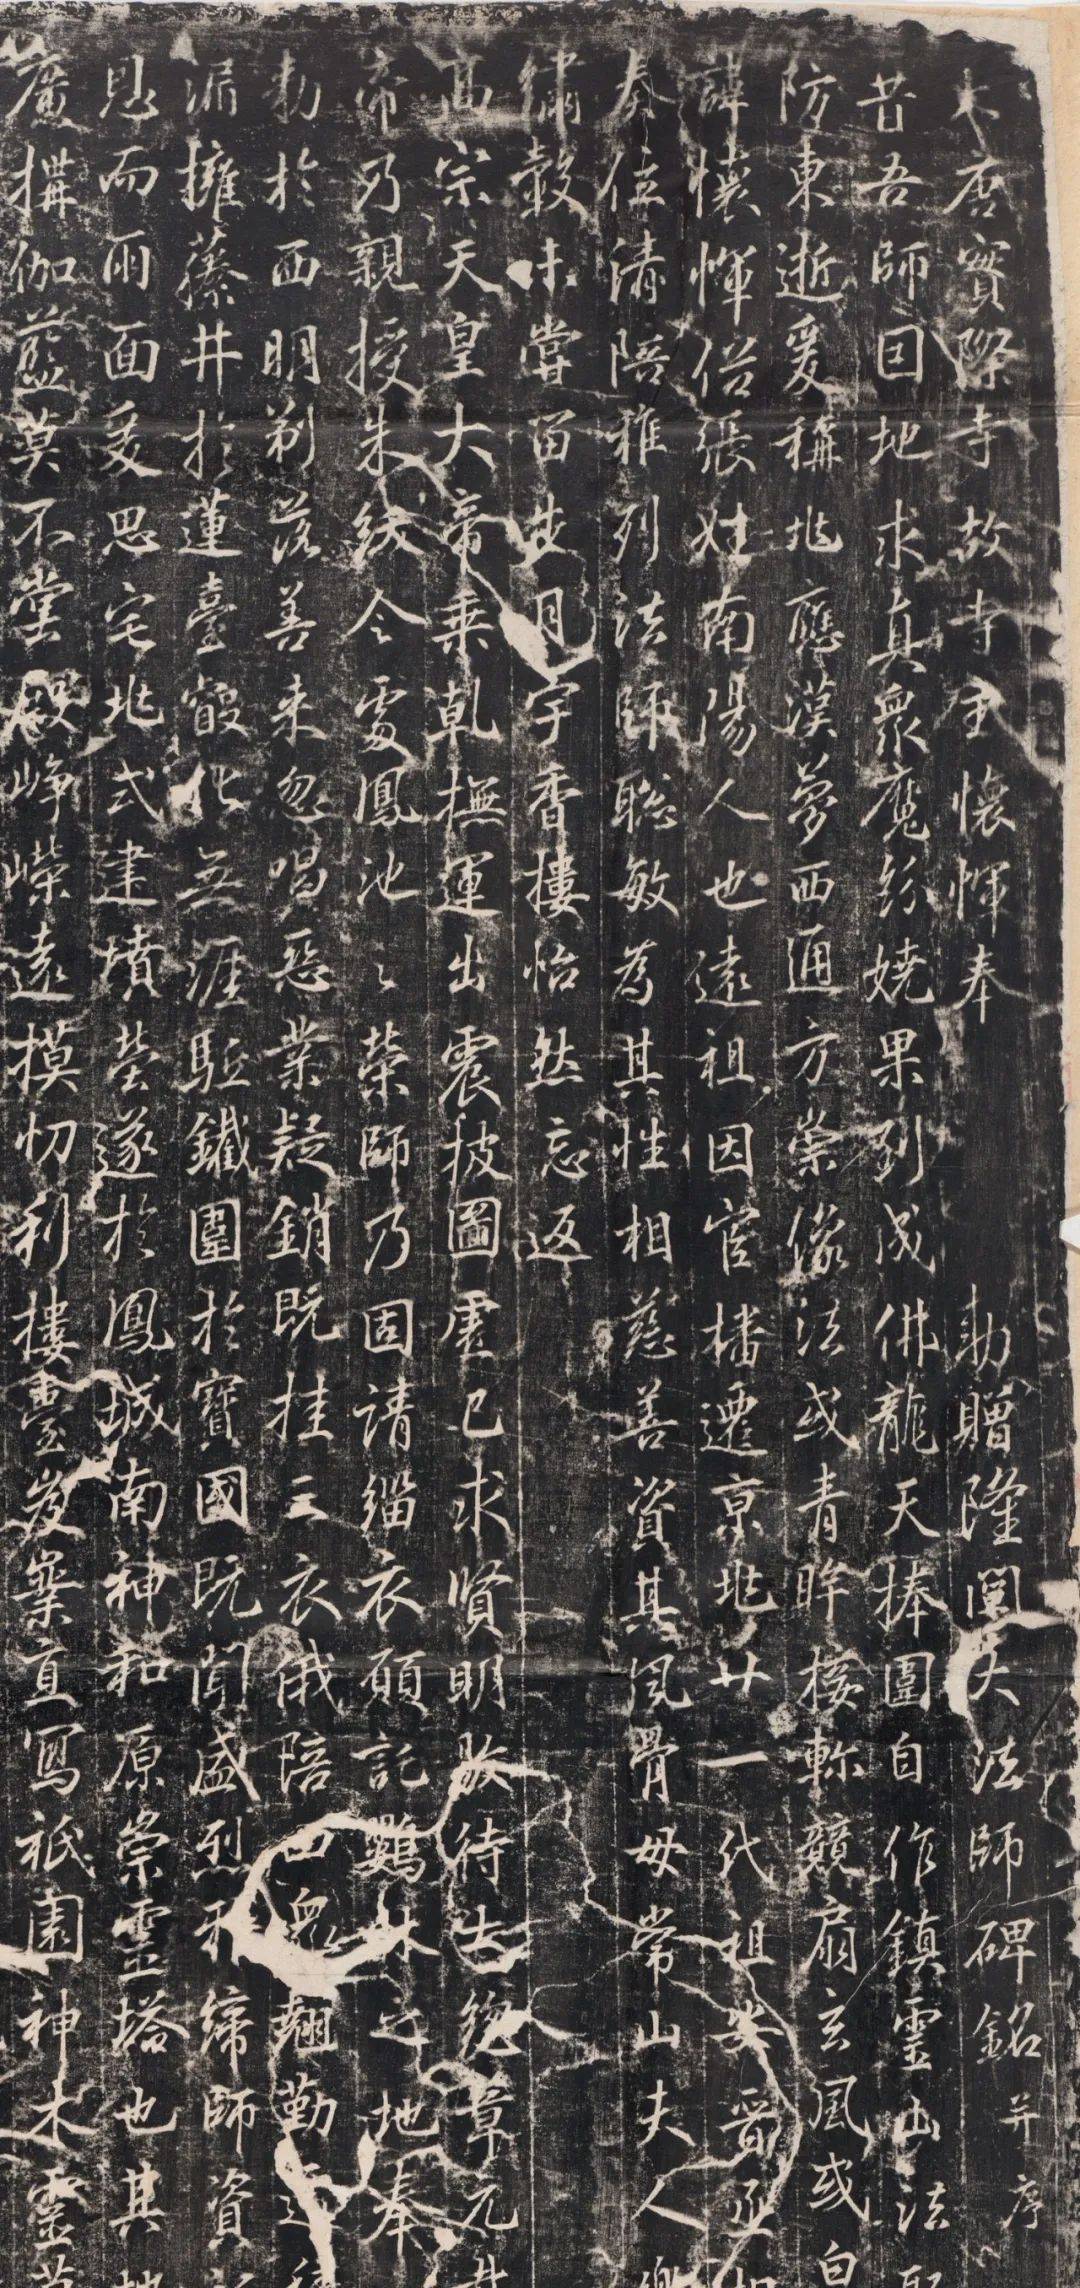 大唐實際寺故寺主懷惲奉 勅贈隆闡大法師碑銘并序
昔吾師因地求真眾魔紛嬈果到成佛龍天捧圍自作鎮靈山法
防東逝爰稱兆應漢夢西通方崇像法或青眸接軫競扇玄風或白
諱懷惲俗張姓南陽人也遠祖因官播遷京兆廿一代祖安晉丞相
奉倍清陪雅列法師聰敏為其性相慈善資其風骨母常山夫人樂
繡轂未嘗留步月宇香樓怡然忘返
高宗天皇大帝乘乾撫運出震披圖虛己求賢明敭待士總章元
帝乃親授朱紱令處鳳池之榮師乃固請緇衣願託鷄林之地奉
勅於西明剃落善來忽唱惡業疑銷既挂三衣俄陪四眾翹勤
漏擁藤井於蓮臺毀化無涯駈鐵圍於寶國既聞盛烈雅締師資
恩而雨面爰思宅兆式建墳塋遂於鳳城南神和原崇靈塔也其
廣搆伽藍莫不堂殿崢嶸遠模忉利樓臺岌嶪直寫祇園神木靈草